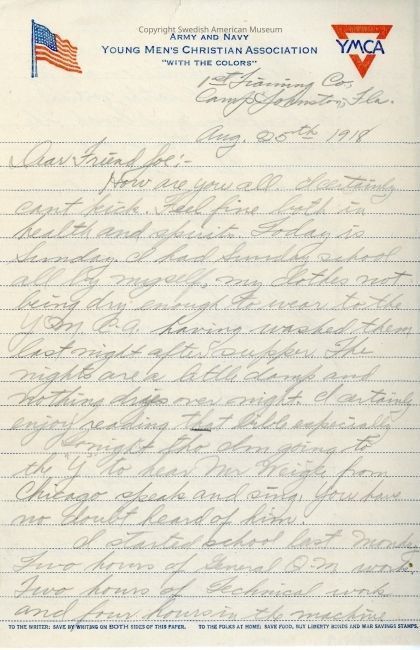 Copyright Swedish American Museum
ARMY AND NAVY
YOUNG MEN'S CHRISTIAN ASSOCIATION
"WITH THE COLORS"
YMCA
1st Training Co,
Camp Johnston, Fla.
Aug. 25th 1918
Dear Friend Joe:-
How are you all. I certainly
cant kick. Feel fine both in
health and spirit. Today is
Sunday. I had Sunday school
all by myself, my clothes not
being dry enough to wear to the
Y.M.C.A. having washed them
last night after supper. The
nights are a little damp and
nothing drys over night. I certainly
enjoy reading that bible especially
Tonight I'm going to
the "Y" to hear Mr Weigle from
Chicago speak and sing. You have
no doubt heard of him.
I started school last Monday
Two hours of General Q.M. work
Two hours of Technical work
and four hours in the machine
TO THE WRITER: SAVE BY WRITING ON BOTH SIDES OF THIS PAPER. TO THE FOLKS AT HOME: SAVE FOOD, BUY LIBERTY BONDS AND WAR SAVINGS STAMPS.